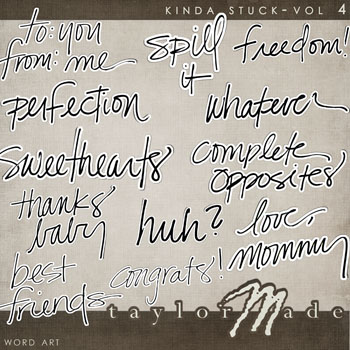 KINDA STUCK-VOL 4
to: you
from: me
spill
it
freedom!
perfection
whatever
sweethearts
complete
opposites
thanks
baby
huh?
love,
mommy
best
friends
congrats!
taylorMade
WORD ART